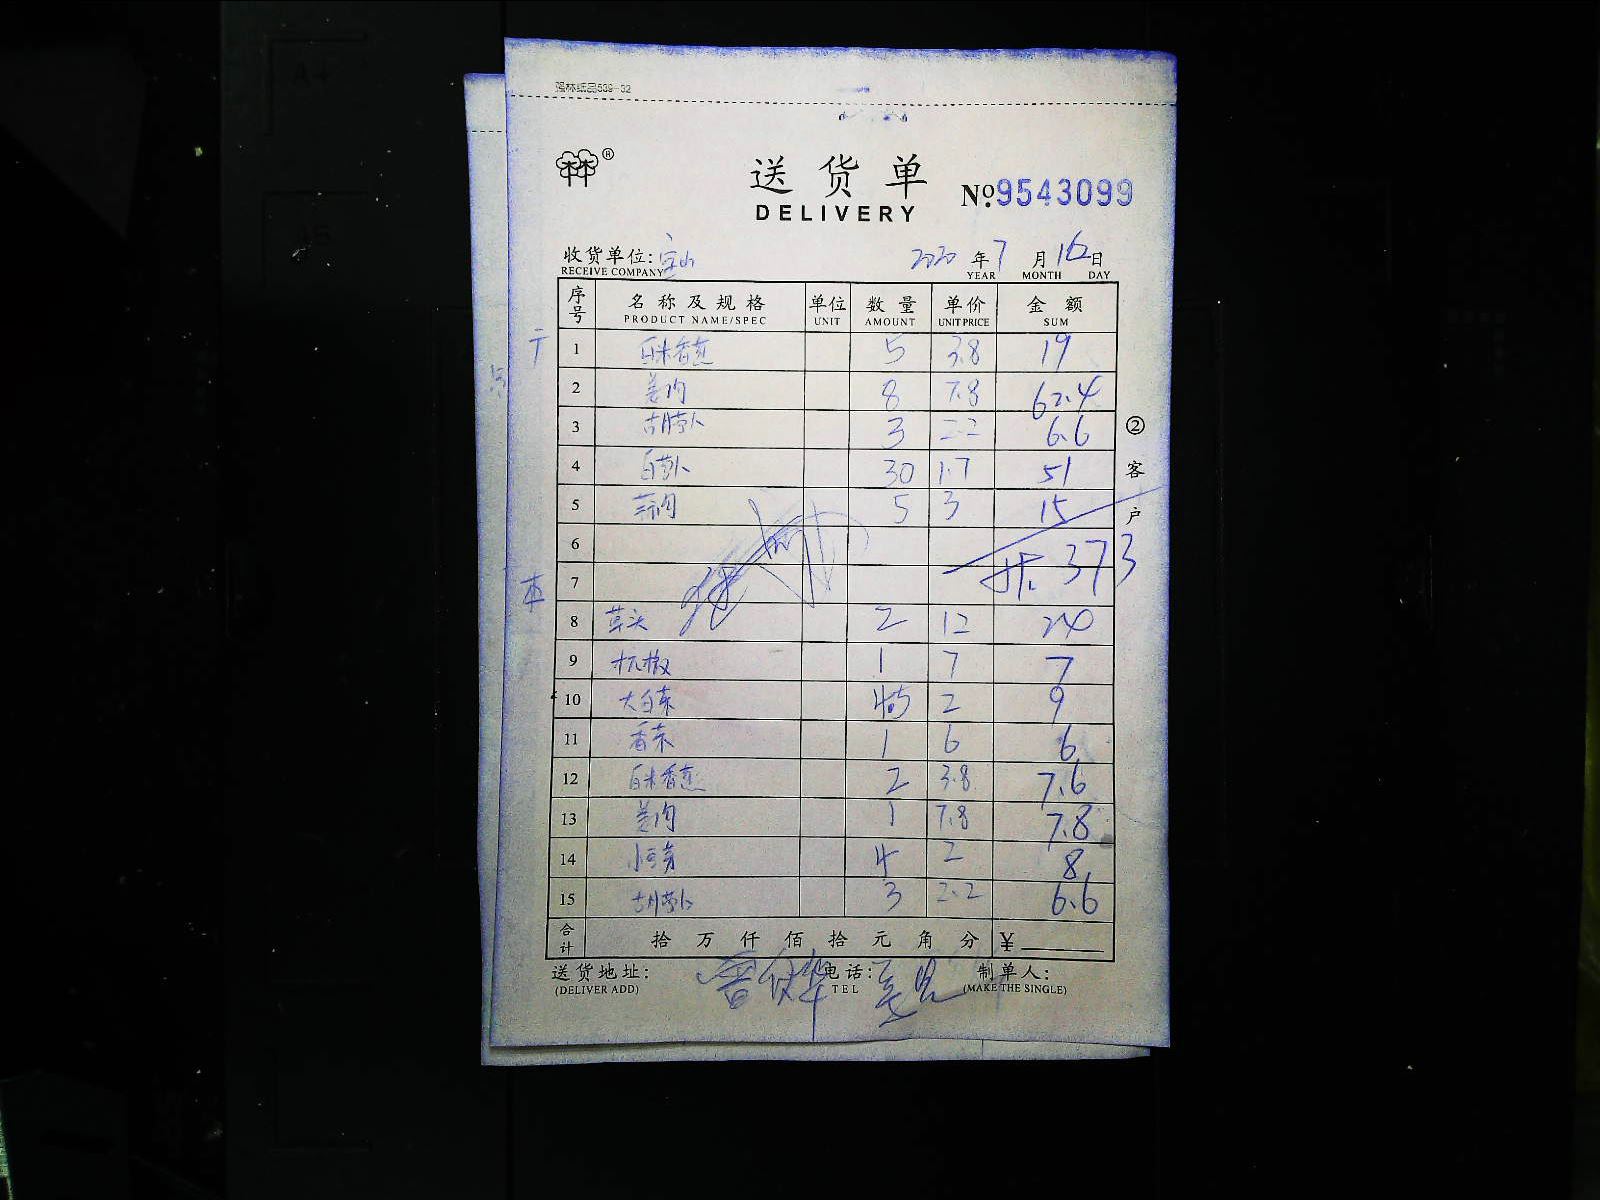 强林纸品539-32
林®
送货单
DELIVERY
No.9543099
收货单位:宝山
RECEIVE COMPANY
2020 年 7 月 16 日
YEAR MONTH DAY
序号 名称及规格 单位 数量 单价 金额
PRODUCT NAME/SPEC UNIT AMOUNT UNIT PRICE SUM
1 5 3.8 19
2 姜肉 8 7.8 62.4
3 古月萝卜 3 2.2 6.6
4 白萝卜 30 1.7 51
5 5 3 15
6
7
共. 373
8 草头 2 12 24
9 杭椒 1 7 7
10 大白菜 4.5 2 9
11 香菜 1 6 6
12 2 3.8 7.6
13 姜肉 1 7.8 7.8
14 4 2 8
15 古月萝卜 3 2.2 6.6
合计 拾 万 仟 佰 拾 元 角 分 ¥
② 客户
送货地址: 电话: 制单人:
(DELIVER ADD) TEL (MAKE THE SINGLE)